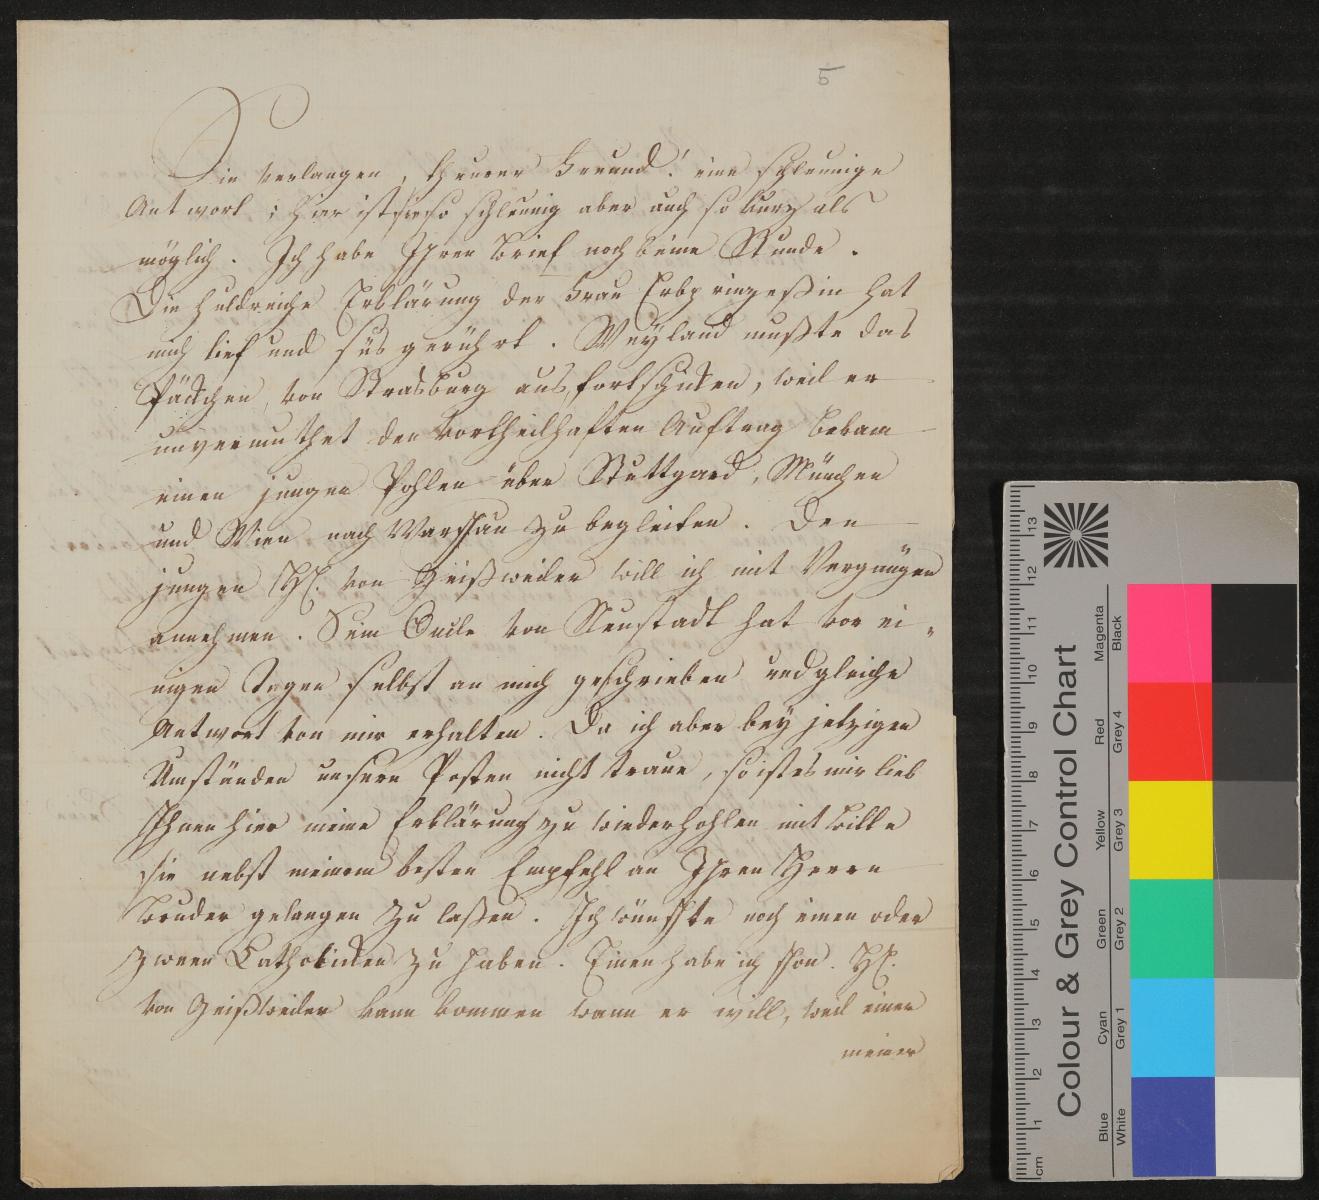 5
Sie verlangen, theurer Freund! eine schleunige
Antwort; hier ist sie so schleunig aber auch so kurz als
möglich. Ich habe Ihren Brief noch keine Stunde.
Die huldreiche Erklärung der Frau Erbprinzeßin hat
mich tief und süs gerührt. Weyland mußte das
Päckchen von Strasburg aus fortschicken, weil er
unvermuthet den vortheilhaften Auftrag bekam
einen jungen Pohlen über Stuttgard, München
und Wien nach Warschau zu begleiten. Den
jungen H. von Geißweiler will ich mit Vergnügen
annehmen. Sein Oncle von Neustadt hat vor ei-
nigen Tagen selbst an mich geschrieben und gleiche
Antwort von mir erhalten. Da ich aber bey jetzigen
Umständen unsern Posten nicht traue, so ist es mir lieb
Ihnen hier meine Erklärung zu wiederhohlen mit Bitte
sie nebst meinem besten Empfehl an Ihren Herrn
Bruder gelangen zu laßen. Ich wünschte noch einen oder
zween Catholicken zu haben. Einen habe ich schon. H.
von Geißweiler kann kommen wann er will, weil einer
meiner
Colour & Grey Control Chart
Blue Cyan Green Yellow Red Magenta
White Grey 1 Grey 2 Grey 3 Grey 4 Black
cm 1 2 3 4 5 6 7 8 9 10 11 12 13